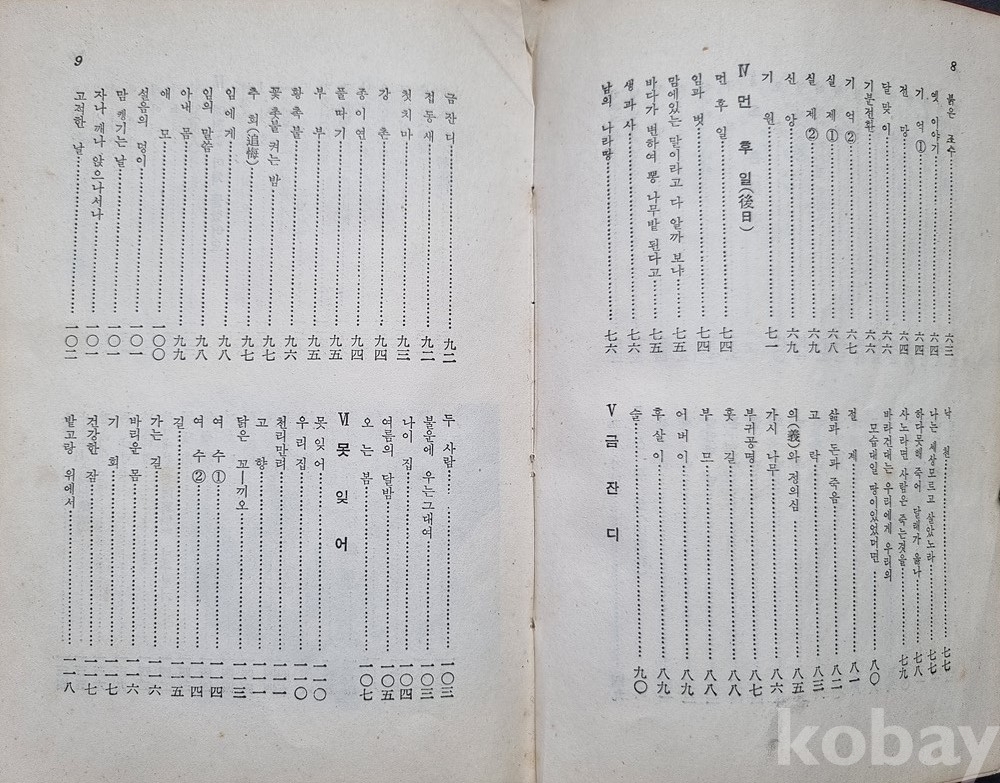 8
붉은 조수……六三
옛 이야기……六四
기 억①……六四
전 망……六四
달 맞 이……六六
기분전환……六六
기 억②……六七
실 제①……六八
실 제②……六九
신 앙……六九
기 원……七一
Ⅳ 먼 후 일(後日)
먼 후 일……七四
임과 벗……七四
맘에있는 말이라고 다 알까 보냐……七五
바다가 변하여 뽕 나무밭 된다고……七五
생 과 사……七六
남의 나라땅……七六
낙 천……七七
나는 세상모르고 살았노라……七七
하다못해 죽어 달래가 올나……七八
사노라면 사람은 죽는것을……七九
바라건대는 우리에게 우리의
모습대일 땅이있었더면……八〇
절 제……八一
삶과 돈과 죽음……八二
고 락……八三
의(義)와 정의심……八五
가시 나무……八六
부귀공명……八七
훗 길……八八
부 모……八八
어 버 이……八九
후 살 이……八九
술……九〇
Ⅴ 금 잔 디
9
금 잔 디……九二
접 동 새……九二
첫 치 마……九三
강 촌……九四
종 이 연……九四
풀 따 기……九五
부 부……九五
황 촉 불……九六
꽃 촛불 켜는 밤……九七
추 회(追悔)……九七
임 에 게……九八
임의 말씀……九八
아내 몸……九九
애 모……一〇〇
설움의 덩이……一〇〇
맘 켕기는 날……一〇一
자나 깨나 앉으나서나……一〇一
고적한 날……一〇二
두 사람……一〇三
불운에 우는그대여……一〇三
나 이 집……一〇四
여름의 달밤……一〇五
오 는 봄……一〇七
Ⅵ 못 잊 어
못 잊 어……一一〇
우 리 집……一一〇
천리만리……一一一
고 향……一一一
닭은 꼬―끼오……一一三
여 수①……一一四
여 수②……一一四
길……一一五
가는 길……一一六
바리운 몸……一一六
기 회……一一七
건강한 잠……一一七
밭고랑 위에서……一一八
kobay